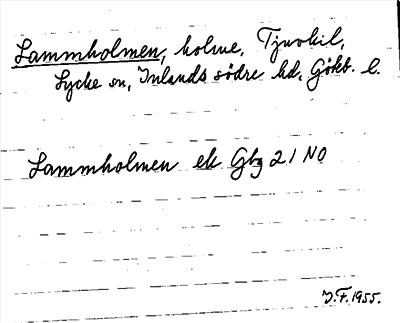 Lammholmen, holme, Tjuvkil,
Lycke sn, Inlands södre hd, Göteb. l.
Lammholmen ek Gbg 21 NO
J.F. 1955.